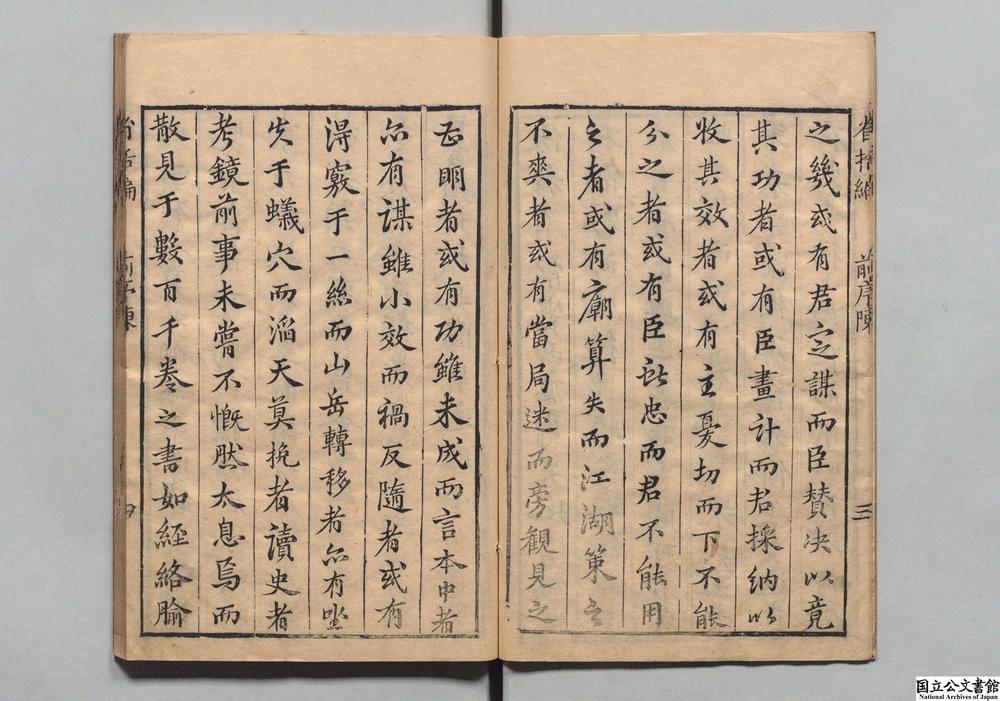 之幾或有君定謀而臣賛决以竟
其功者或有臣畫計而君採納以
收其效者或有主憂切而下不能
分之者或有臣訟忠而君不能用
之者或有廟算失而江湖策之
不爽者或有當局迷而旁観見之
前序陳
三
至明者或有功雖未成而言本中者
亦有謀雖小效而禍反隨者或有
淂竅于一絲而山岳轉移者亦有坐
失于蟻穴而滔天莫挽者讀史者
考鏡前事未嘗不慨然太息焉而
散見于數百千卷之書如經絡腧
國立公文書館
National Archives of Japan